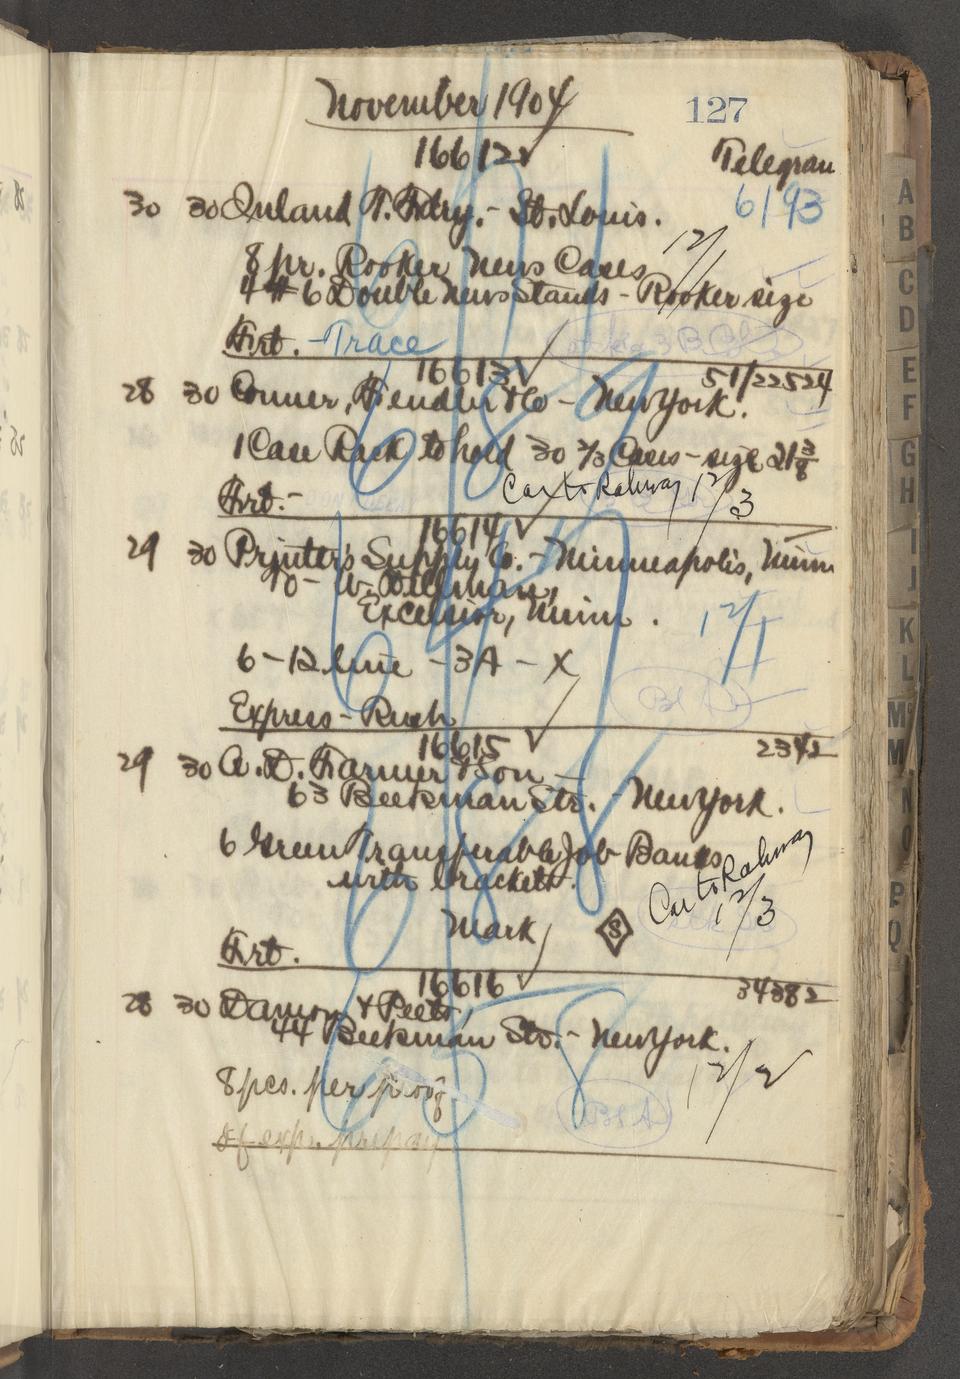 November 1904
127
16612 ✓
Telegram
6193
30 30 Inland T. Fdry. - St. Louis.
8 pr. Rooker News Cases
12/1
4 #6 Double News Stands - Rooker size
Frt. - Trace
16613 ✓
51/22524
28 30 Conner, Fendler & Co - New York.
1 Case Rack to hold 30 2/3 Cases - size 21 3/8
Frt. -
Car to Rahway 12/3
16614 ✓
29 30 Printer's Supply Co. - Minneapolis, Minn
Excelsior, Minn.
12/1
6 - 12 line - 3A - X
Bl
Express - Rush
16615 ✓
2342
29 30 A. D. Farmer & Son -
63 Beekman Str. - New York.
6 Green Transferable Job Banks
with brackets.
Car to Rahway
12/3
Mark S
Frt.
16616 ✓
34382
28 30 Damon & Peets,
44 Beekman Str. - New York.
12/2
8 pcs. per proof
expr. prepay
A
B
C
D
E
F
G
H
I
J
K
L
M
M
N
O
P
Q